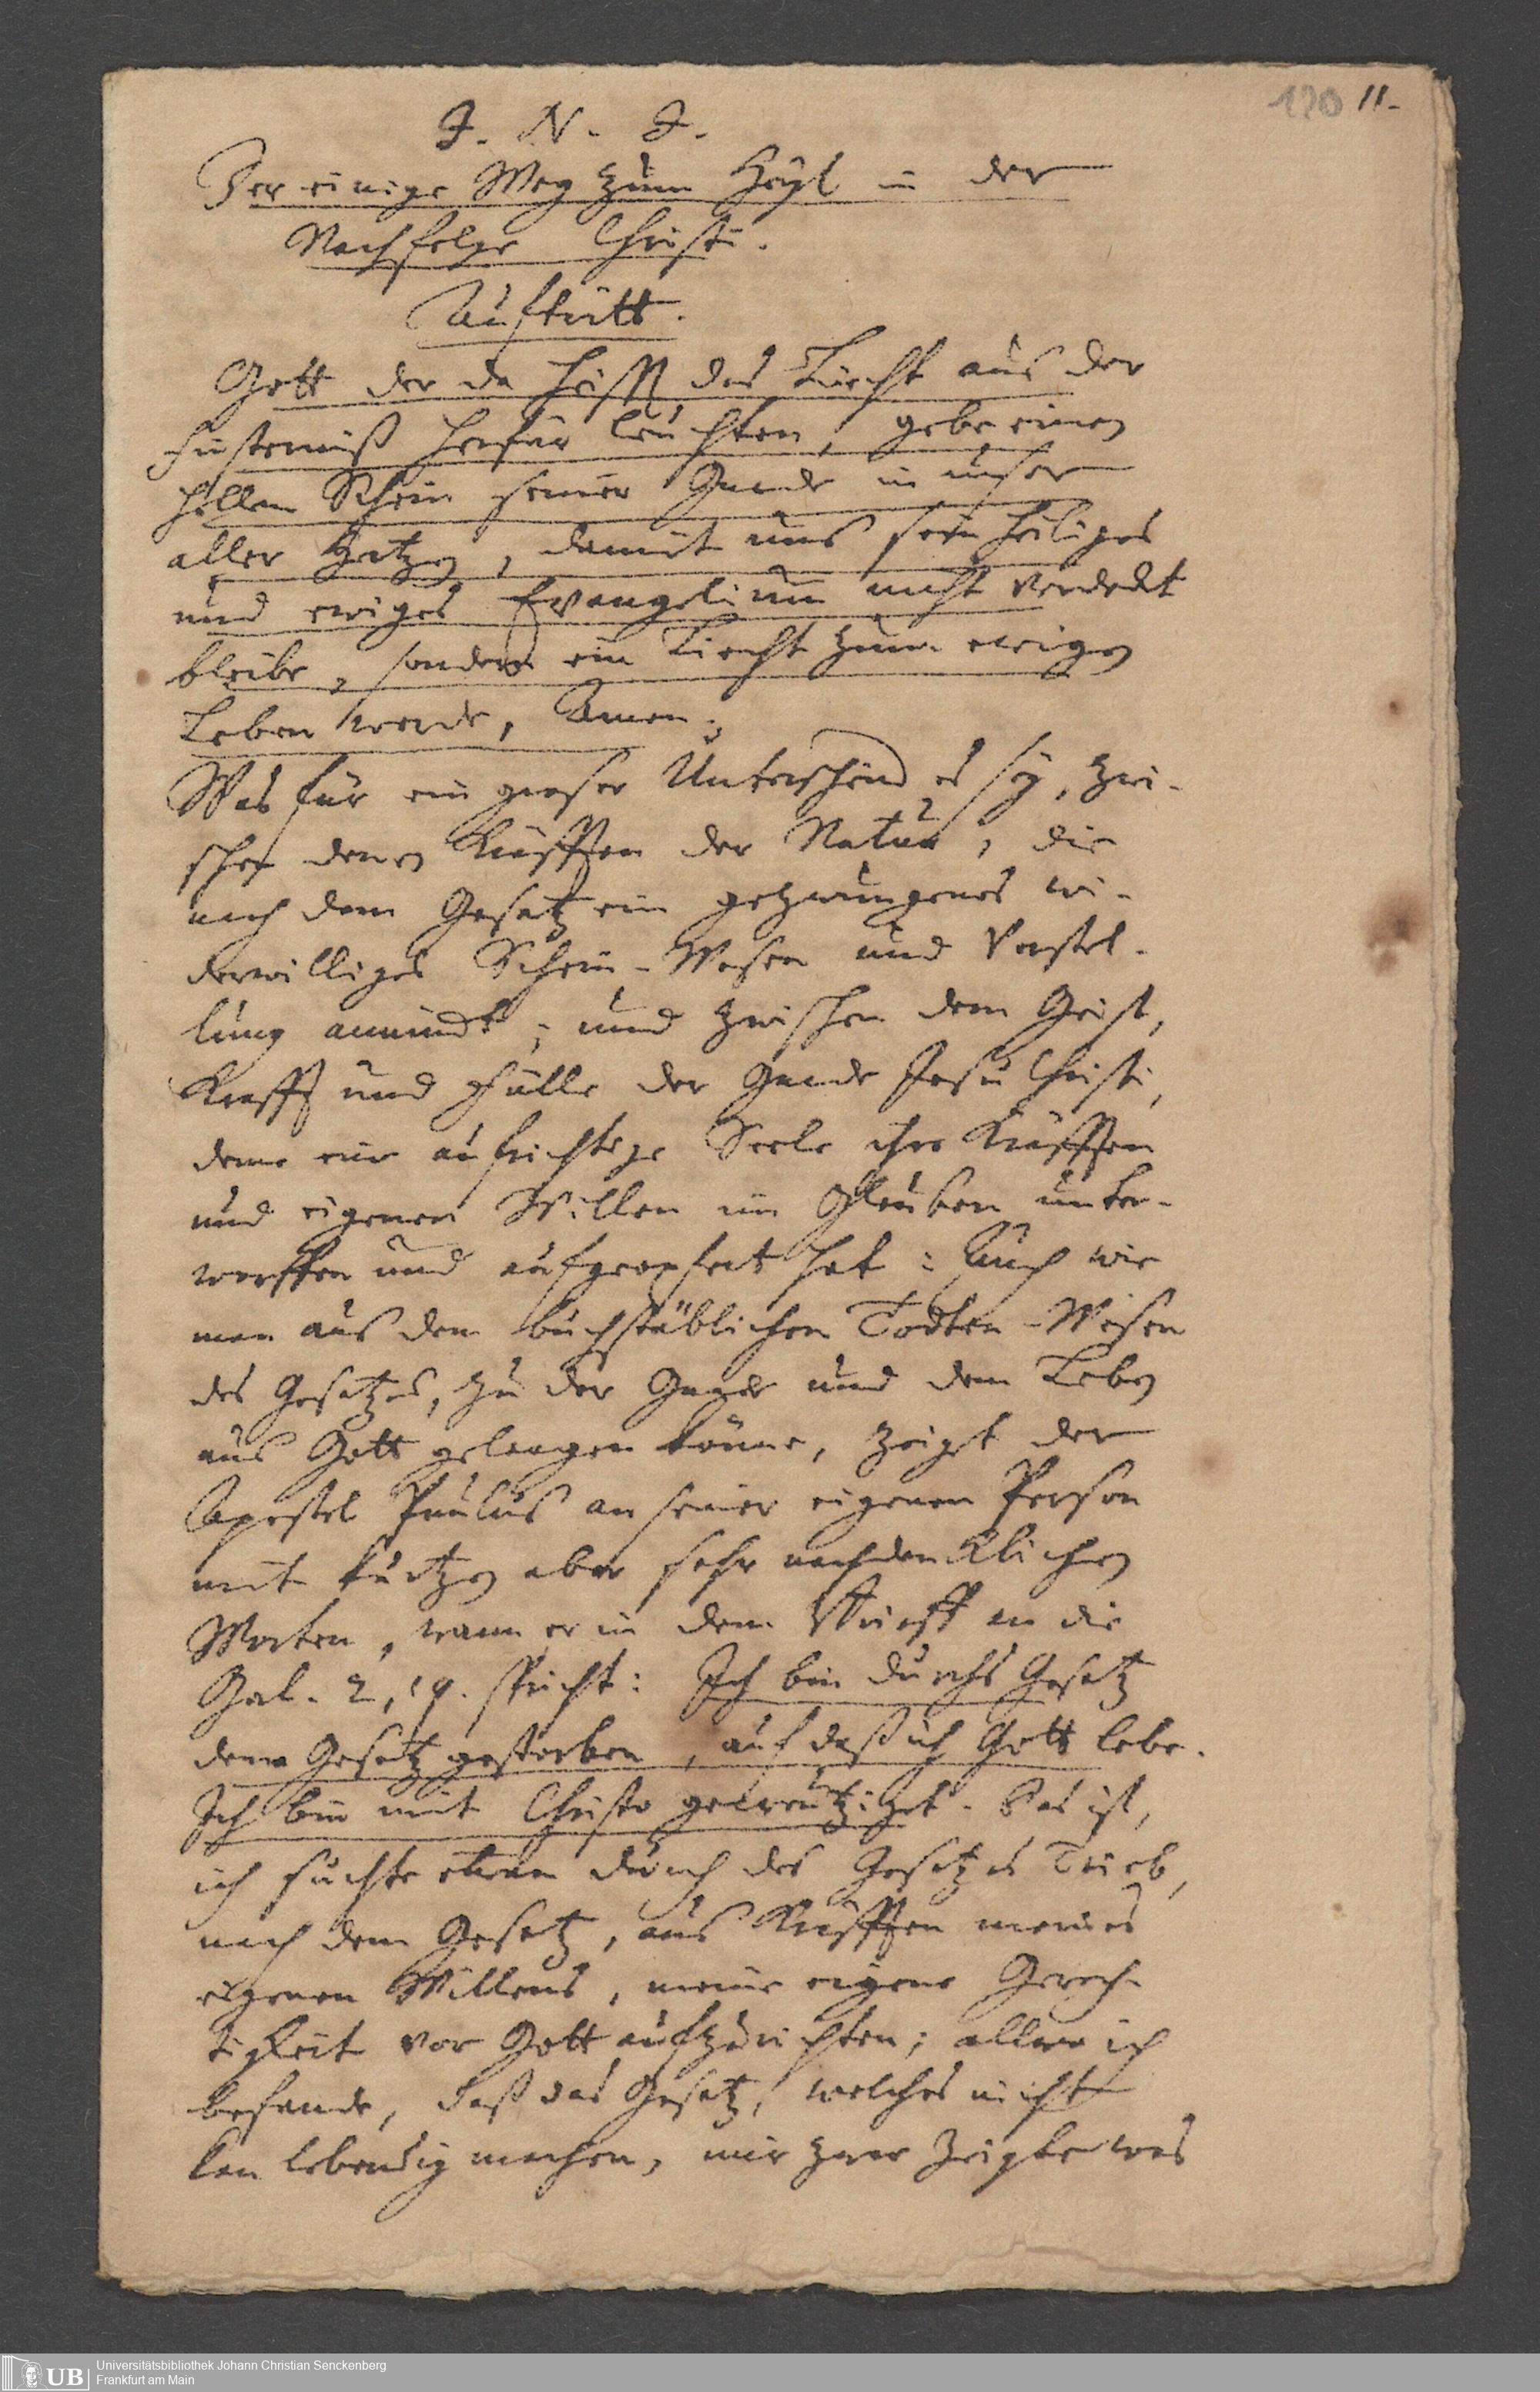 120 11.
J. N. J.
Der einige Weg zum Heyl in der
Nachfolge Christi.
Auftritt.
Gott der da hiess das Liecht aus der
Finsternuß herfür leuchten, gebe einen
hellen Schein seiner Gnade in unser
aller Hertzen, damit uns sein heiliges
und ewiges Evangelium nicht verdeckt
bleibe, sondern ein Liecht zum ewigen
Leben werde, Amen.
Was für ein groser Unterscheid es sey, zwi-
schen denen Kräfften der Natur, die
nach dem Gesatz ein gezwungenes wi-
derwilliges Schein-Wesen und Verstel-
lung annimbt; und zwischen dem Geist,
Krafft und Fülle der Gnade Jesu Christi,
deme eine aufrichtige Seele ihre Kräfften
und eigenen Willen im Glauben unter-
worffen und aufgeopfert hat: Auch wie
man aus dem buchstäblichen Todten-Wesen
des Gesatzes, zu der Gnade und dem Leben
aus Gott gelangen könne, zeigt der
Apostel Paulus an seiner eigenen Person
mit kurtzen aber sehr nachdencklichen
Worten, wann er in dem Brieff an die
Gal. 2, 19. spricht: Ich bin durchs Gesatz
dem Gesatz gestorben, auf daß ich Gott lebe.
Ich bin mit Christo gecreutziget. Das ist,
ich suchte etwan durch des Gesatzes Trieb,
nach dem Gesatz, aus Kräfften meines
eigenen Willens, meine eigene Gerech-
tigkeit vor Gott aufzurichten; allein ich
befande, daß das Gesatz, welches nicht
kan lebendig machen, mir zwar zeigte was
UB Universitätsbibliothek Johann Christian Senckenberg
Frankfurt am Main